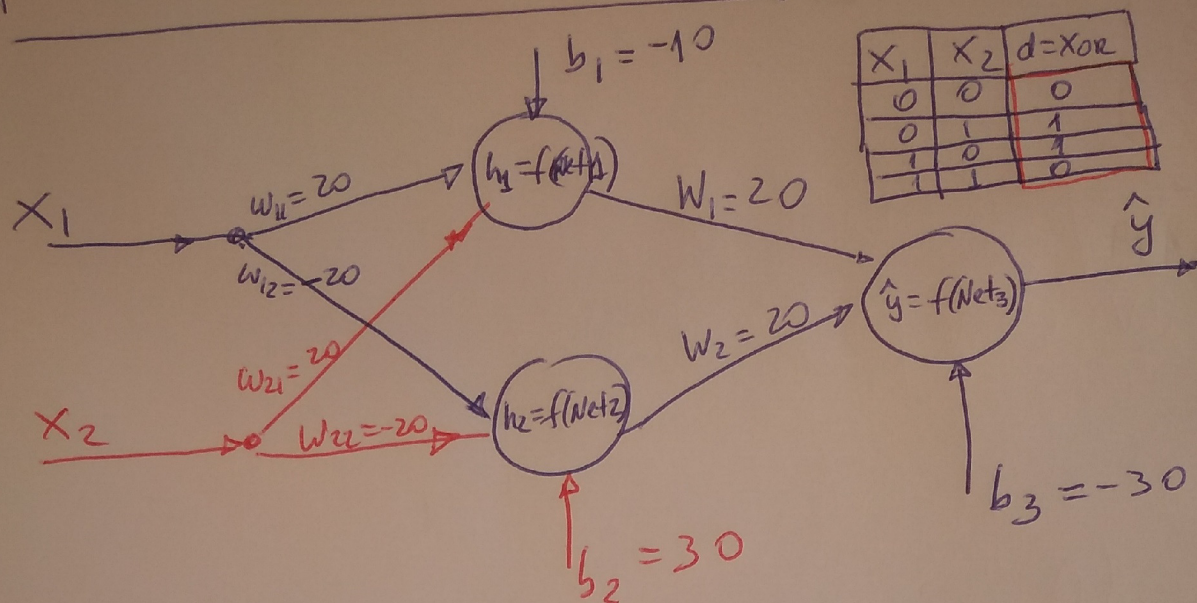 b₁ = -10
X₁ X₂ d=XOR
0 0 0
0 1 1
1 0 1
1 1 0
h₁=f(Net1)
w₁₁=20
W₁=20
X₁
w₁₂=-20
ŷ
ŷ=f(Net₃)
W₂=20
w₂₁=20
X₂
w₂₂=-20
h₂=f(Net2)
b₃ = -30
b₂ = 30